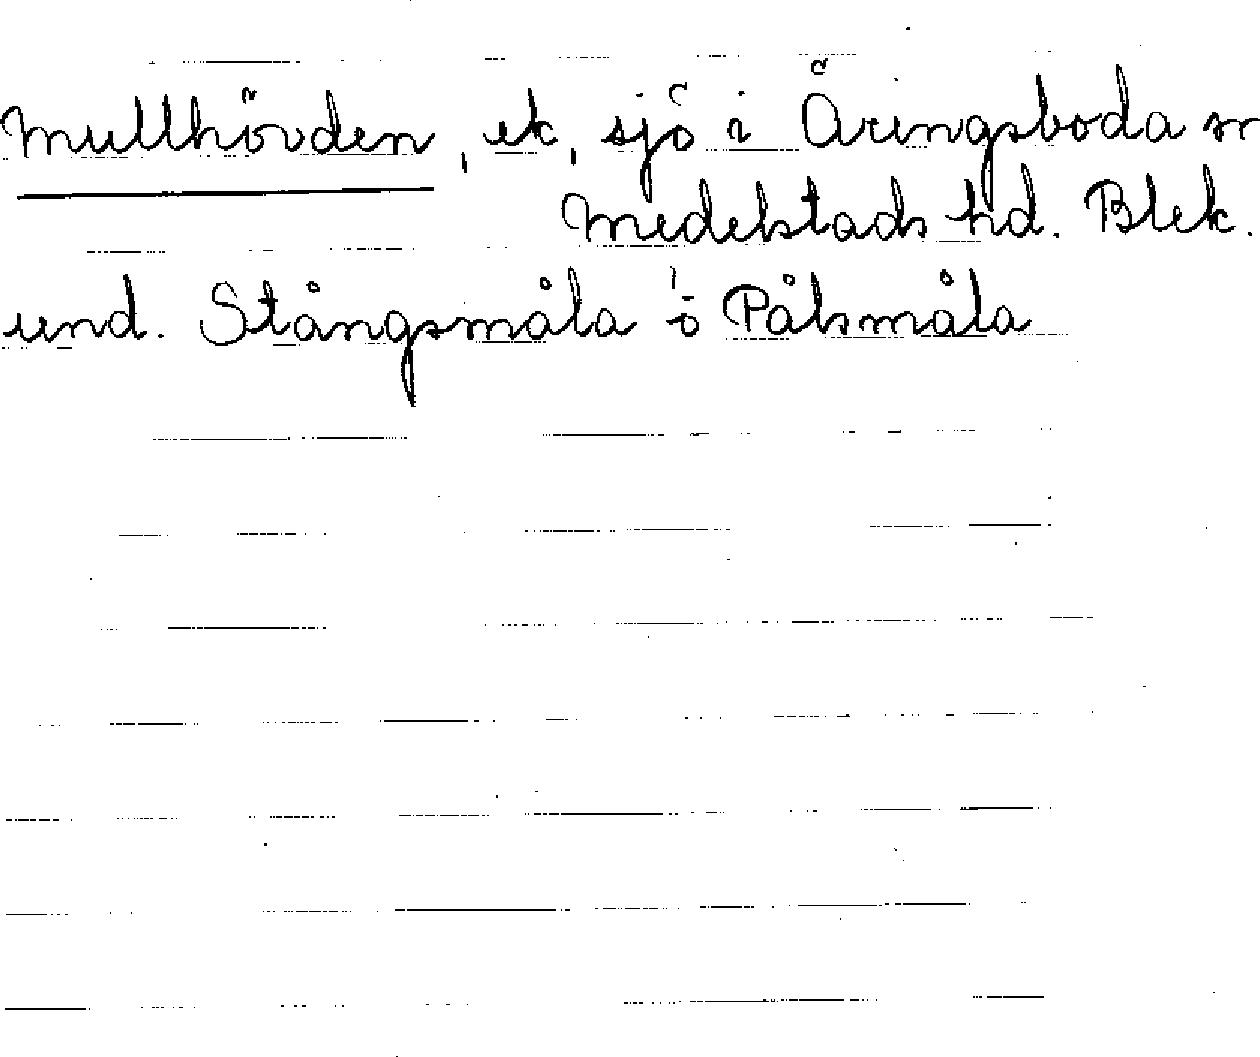 Mullhövden, ek, sjö i Öringsboda sn
Medelstads hd. Blek.
und. Stångsmåla o Pålsmåla